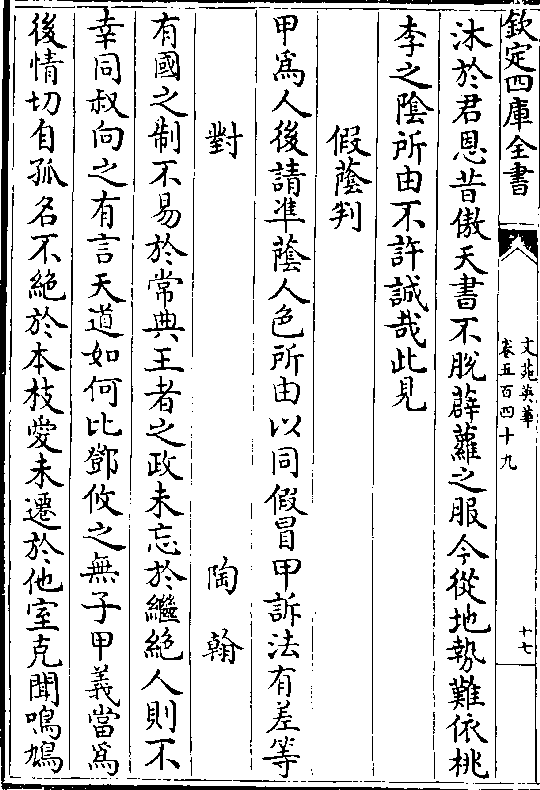 欽定四庫全書
文苑英華
卷五百四十九
十七
沐於君恩昔傲天書不脫薜蘿之服今從地勢難依桃
李之隂所由不許誠哉此見
假蔭判
甲為人後請準蔭人色所由以同假冒甲訴法有差等
對
陶翰
有國之制不易於常典王者之政未忘於繼絶人則不
幸同叔向之有言天道如何比鄧攸之無子甲義當為
後情切自孤名不絶於本枝愛未遷於他室克聞鳴鳩